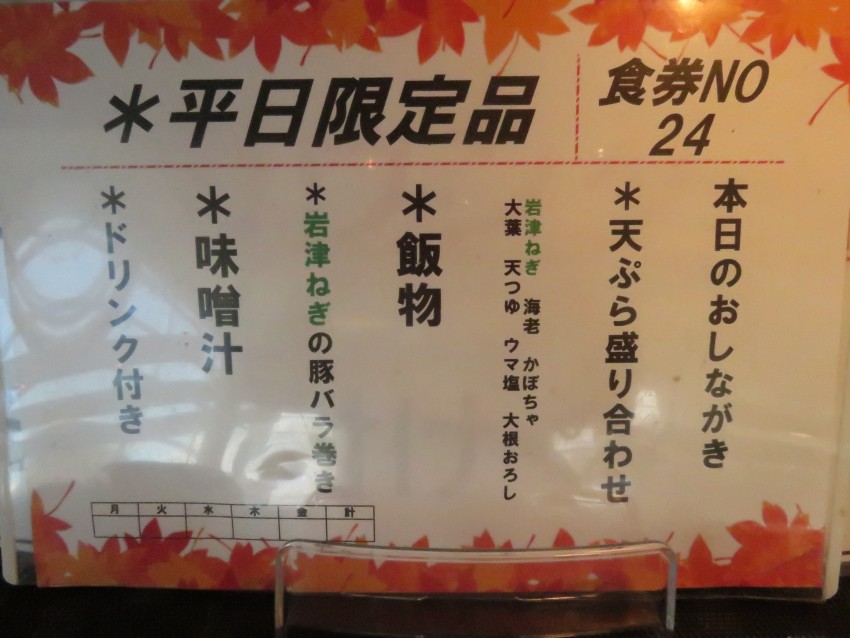 ＊平日限定品
食券NO
24
本日のおしながき
＊天ぷら盛り合わせ
岩津ねぎ 海老 かぼちゃ
大葉 天つゆ ウマ塩 大根おろし
＊飯物
＊岩津ねぎの豚バラ巻き
＊味噌汁
＊ドリンク付き
月 火 水 木 金 計